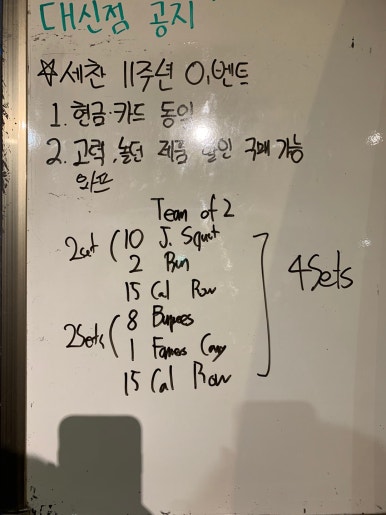 대신점 공지
☆세찬 11주년 이벤트
1. 현금·카드 동일
2. 고력, 놀던 제품 할인 구매 가능
와프
Team of 2
2set ( 10 J. Squat
2 Run
15 Cal Row
2Sets ( 8 Burpees
1 Famers Carry
15 Cal Row
4Sets